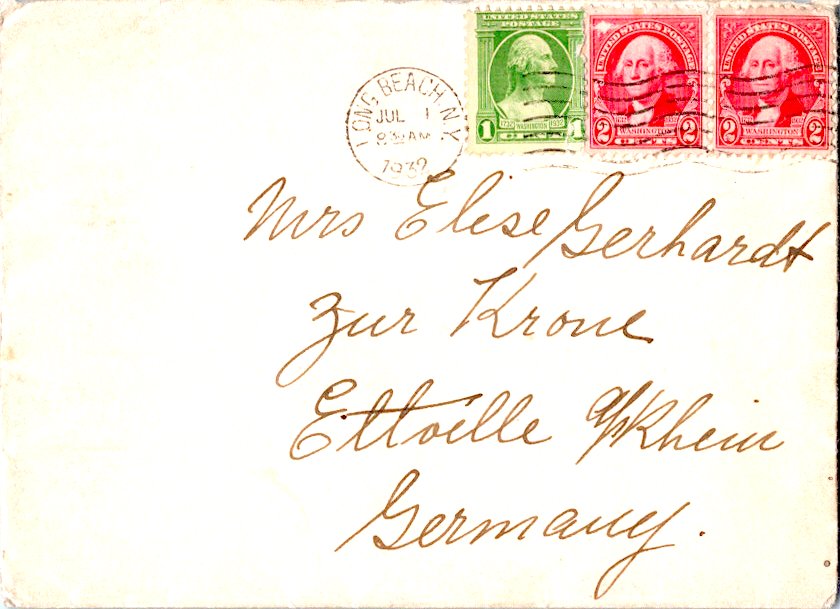 UNITED STATES POSTAGE
1732 WASHINGTON 1932
1 CENT 1
UNITED STATES POSTAGE
WASHINGTON
2 CENTS 2
UNITED STATES POSTAGE
WASHINGTON
2 CENTS 2
LONG BEACH, N.Y.
JUL 1
AM
1932
Mrs Elise Gerhardt
zur Krone
Ettville a/Rhein
Germany.